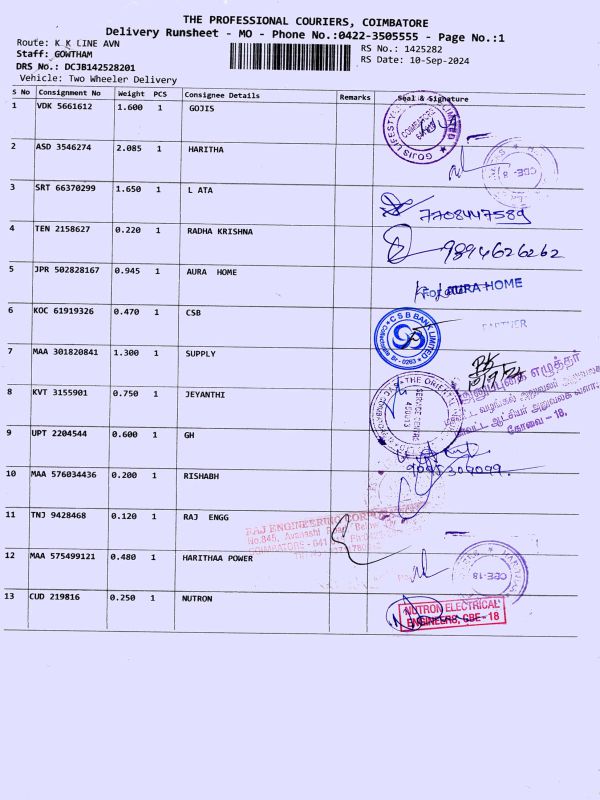 THE PROFESSIONAL COURIERS, COIMBATORE
Delivery Runsheet - MO - Phone No.:0422-3505555 - Page No.:1
Route: K K LINE AVN
RS No.: 1425282
Staff: GOWTHAM
RS Date: 10-Sep-2024
DRS No.: DCJB142528201
Vehicle: Two Wheeler Delivery
S No Consignment No Weight PCS Consignee Details Remarks Seal & Signature
1 VDK 5661612 1.600 1 GOJIS
GOJIS LIFESTYLE LIMITED COIMBATORE
2 ASD 3546274 2.085 1 HARITHA
CBE-8
3 SRT 66370299 1.650 1 L ATA
7708447589
4 TEN 2158627 0.220 1 RADHA KRISHNA
9894626262
5 JPR 502828167 0.945 1 AURA HOME
For AURA HOME
6 KOC 61919326 0.470 1 CSB
CSB BANK LIMITED
PARTNER
7 MAA 301820841 1.300 1 SUPPLY
கோவை - 18.
8 KVT 3155901 0.750 1 JEYANTHI
THE ORIENTAL
SERVICE CENTRE
450013
9 UPT 2204544 0.600 1 GH
10 MAA 576034436 0.200 1 RISHABH
11 TNJ 9428468 0.120 1 RAJ ENGG
RAJ ENGINEERING
No.845, Avanashi Road
COIMBATORE - 641
12 MAA 575499121 0.480 1 HARITHAA POWER
CBE-18
13 CUD 219816 0.250 1 NUTRON
NUTRON ELECTRICAL
ENGINEERS, CBE-18